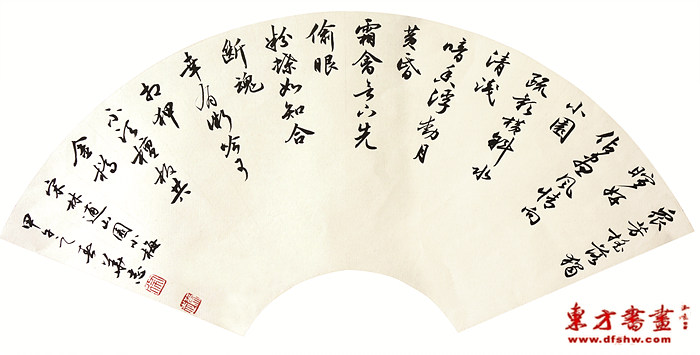 眾芳搖落獨
暄妍
佔盡風情向
小園
疏影橫斜水
清淺
暗香浮動月
黃昏
霜禽欲下先
偷眼
粉蝶如知合
斷魂
幸有微吟可
相狎
不須檀板共
金樽
宋林逋山園小梅
甲午之春
東方書畫
www.dfshw.com